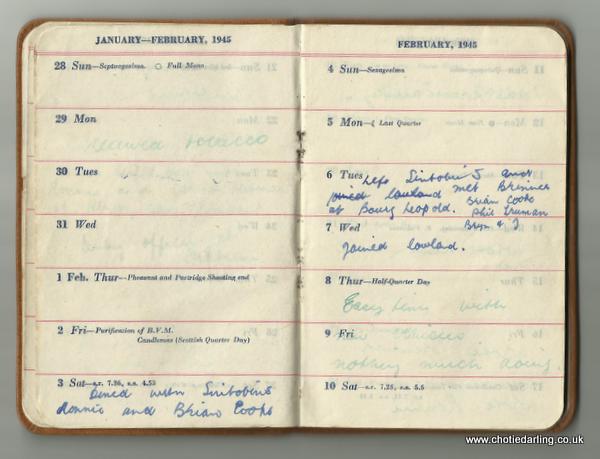 JANUARY—FEBRUARY, 1945
28 Sun—Septuagesima. Full Moon
29 Mon
received tobacco
30 Tues
31 Wed
1 Feb. Thur—Pheasant and Partridge Shooting end
2 Fri—Purification of B.V.M.
Candlemas (Scottish Quarter Day)
3 Sat—s.r. 7.36, s.s. 4.53
Dined with Sintobins
Ronnie and Brian Cooke
FEBRUARY, 1945
4 Sun—Sexagesima
5 Mon—Last Quarter
6 Tues Left Sintobin's and
joined lowland met Brenner
at Bourg Leopold. Brian Cooke
Phil Truman
7 Wed Bryn & I
Joined lowland.
8 Thur—Half-Quarter Day
Easy time with
9 Fri
nothing much doing.
10 Sat—s.r. 7.25, s.s. 5.5
www.chotiedarling.co.uk